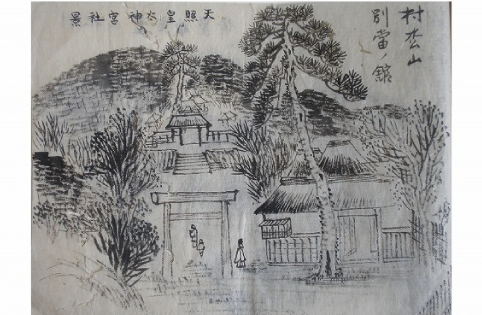 村枩山
別當ノ館
天照皇太神宮社景